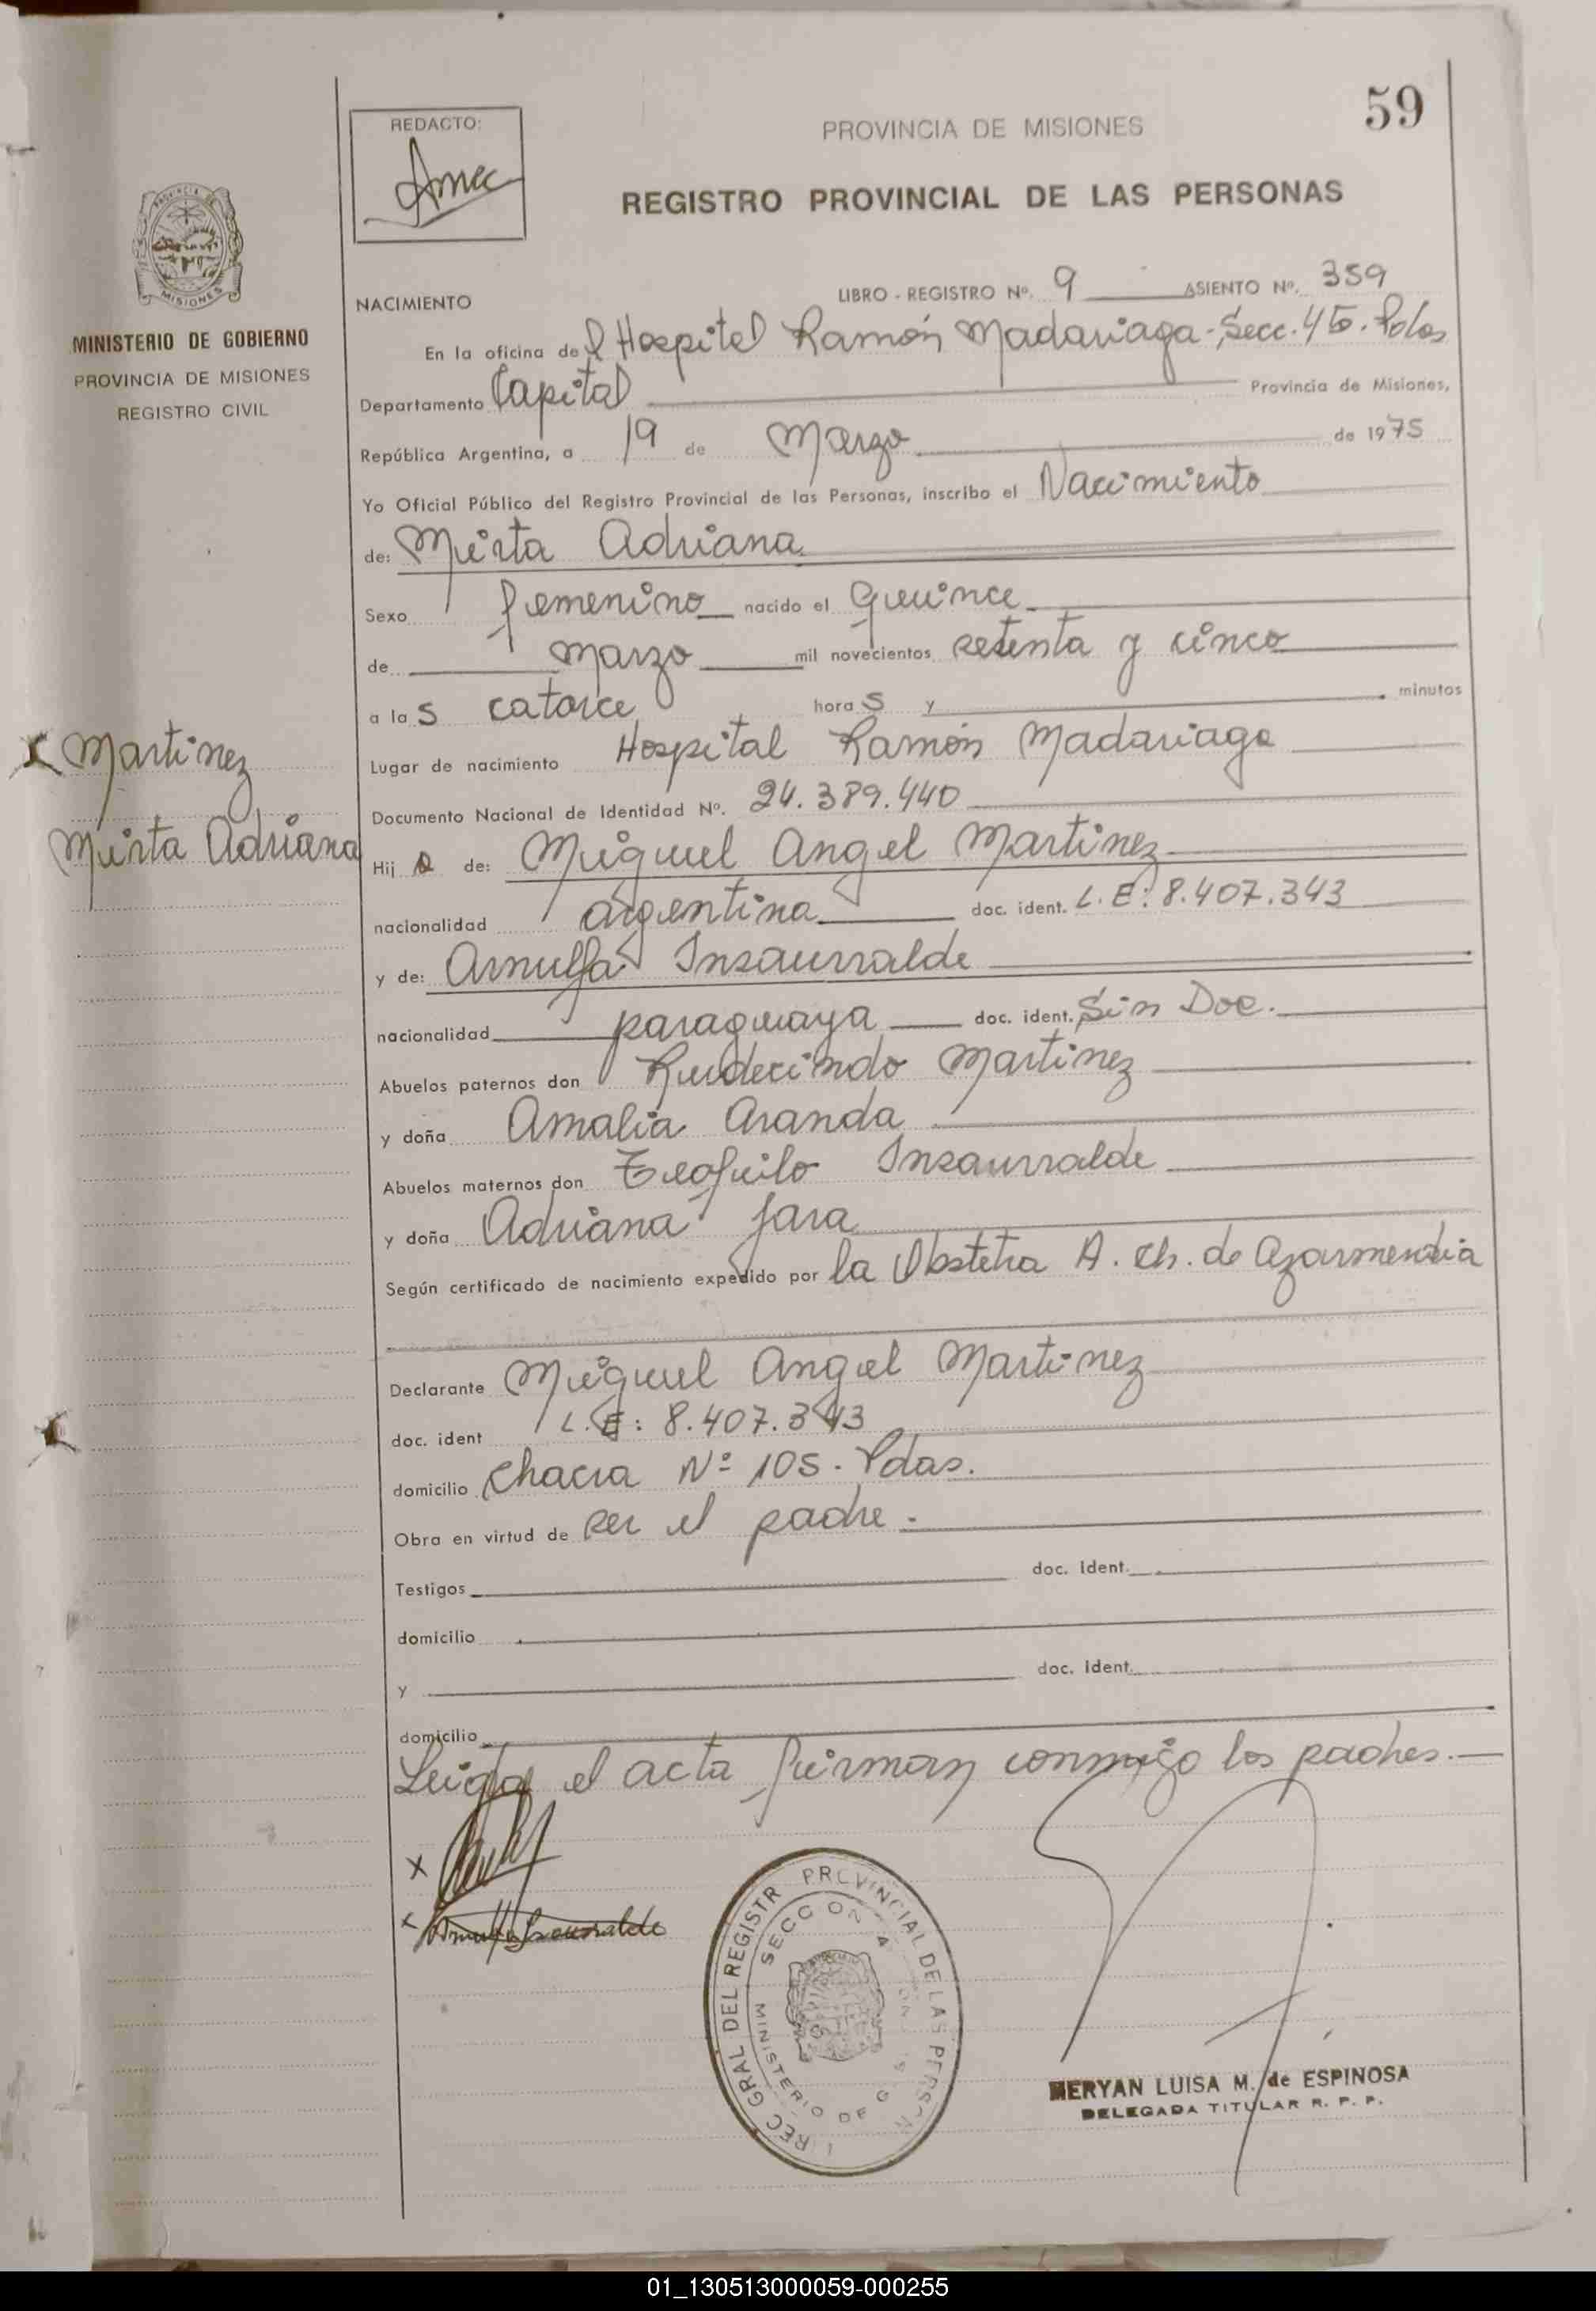 59
REDACTO:
PROVINCIA DE MISIONES
REGISTRO PROVINCIAL DE LAS PERSONAS
MISIONES
MINISTERIO DE GOBIERNO
PROVINCIA DE MISIONES
REGISTRO CIVIL
NACIMIENTO
LIBRO - REGISTRO Nº. 9 ASIENTO Nº. 359
En la oficina del Hospital Ramón Madariaga - Secc. 4to. Pdas
Departamento Capital Provincia de Misiones,
República Argentina, a 19 de Marzo de 1975
Yo Oficial Público del Registro Provincial de las Personas, inscribo el Nacimiento
de: Mirta Adriana
Sexo femenino nacido el Quince
de marzo mil novecientos setenta y cinco
a las catorce horas y minutos
Martinez
Lugar de nacimiento Hospital Ramón Madariaga
Documento Nacional de Identidad Nº. 24.389.440
Mirta Adriana
Hija de: Miguel Angel Martinez
nacionalidad argentina doc. ident. L.E: 8.407.343
y de: Arnulfa Insaurralde
nacionalidad paraguaya doc. ident. Sin Doc.
Abuelos paternos don Rudecindo Martinez
y doña Amalia Aranda
Abuelos maternos don Teofilo Insaurralde
y doña Adriana Jara
Según certificado de nacimiento expedido por la Obstetra A. Ch. de Azarmendia
Declarante Miguel Angel Martinez
doc. ident L.E: 8.407.343
domicilio Chacra Nº 105 - Pdas.
Obra en virtud de ser el padre.
Testigos doc. ident.
domicilio
y doc. ident.
domicilio
Leida el acta firman conmigo los padres.
x
x Arnulfa Insaurralde
DIREC GRAL DEL REGISTR PROVINCIAL DE LAS PERSON
SECCION 4
MINISTERIO DE
MERYAN LUISA M. de ESPINOSA
DELEGADA TITULAR R. P. P.
01_130513000059-000255